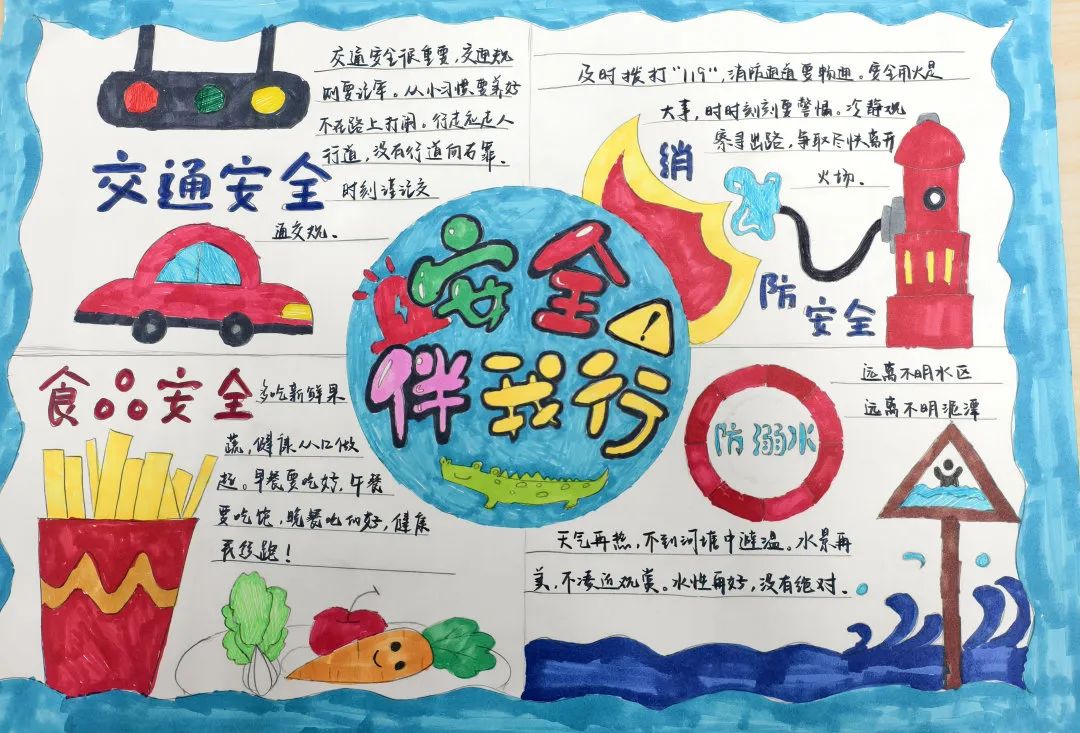 交通安全很重要,交通规
则要记牢。从小习惯要养好
不在路上打闹。行走应走人
行道,没有行道向右靠.
时刻谨记交
通交规.
交通安全
及时拨打"119",消防通道要畅通。安全用火是
大事,时时刻刻要警惕。冷静观
察寻出路,争取尽快离开
火场.
消
防
安全
安全
!
伴我行
食品安全
多吃新鲜果
蔬,健康从口做
起。早餐要吃好,午餐
要吃饱,晚餐吃的好,健康
我能跑!
防溺水
远离不明水区
远离不明泥潭
天气再热,不到河塘中避温。水景再
美,不凑近观赏。水性再好,没有绝对.